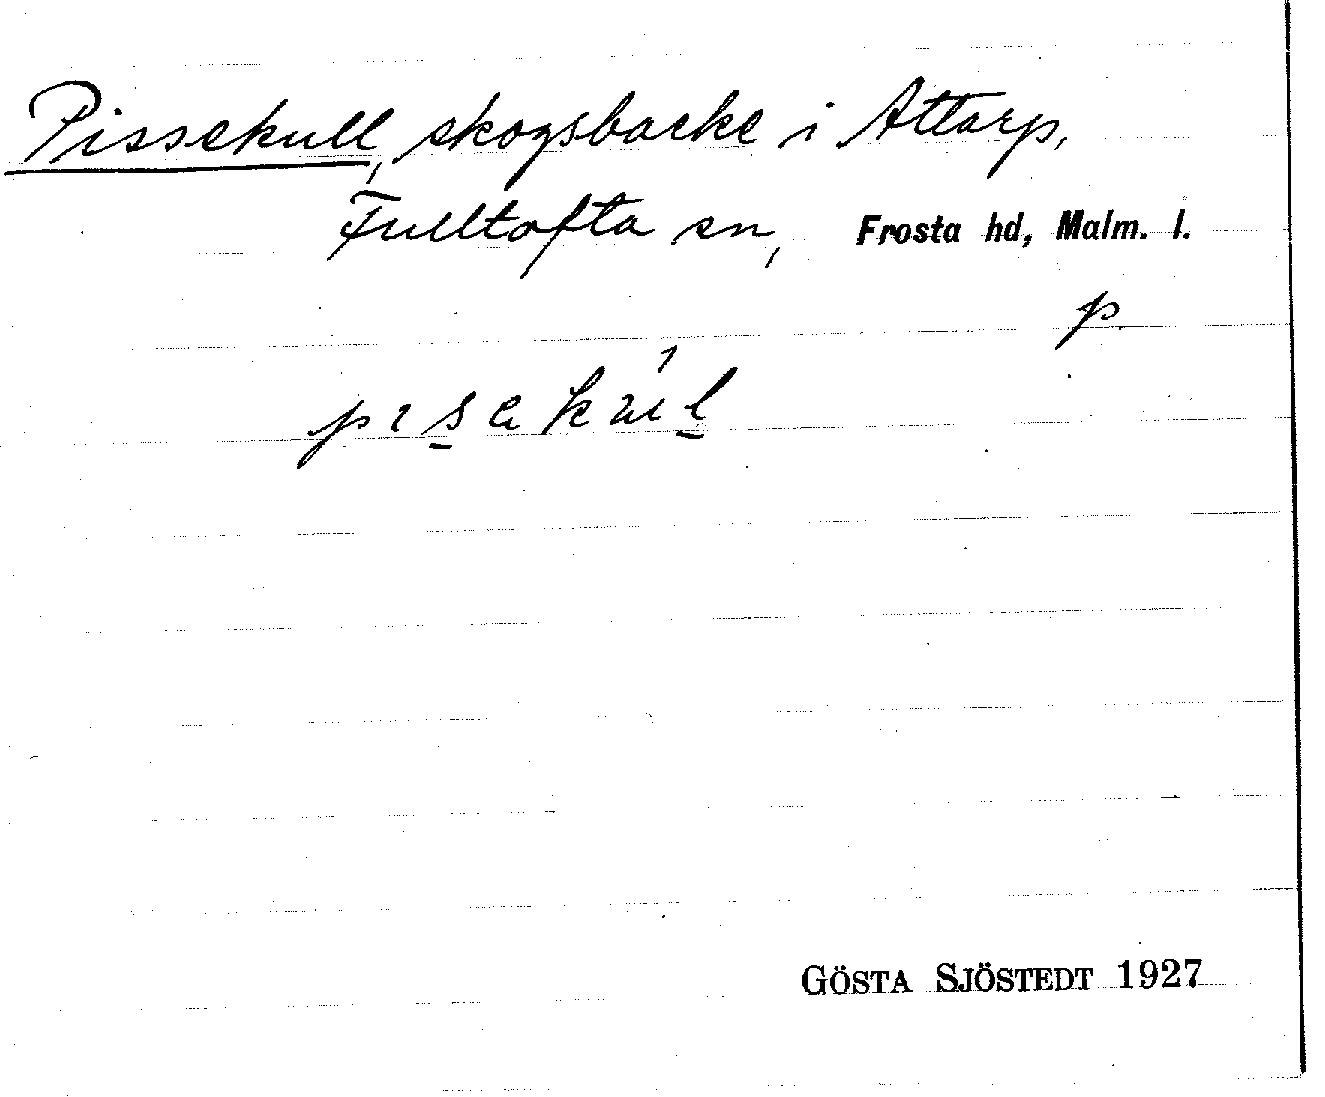 Pissekull, skogsbacke i Attarp,
Fulltofta sn, Frosta hd, Malm. l.
p
GÖSTA SJÖSTEDT 1927